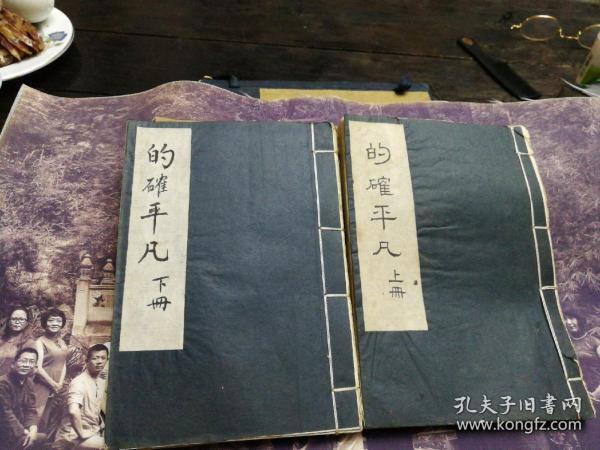 的確平凡 下冊
的確平凡 上冊
孔夫子旧书网
www.kongfz.com